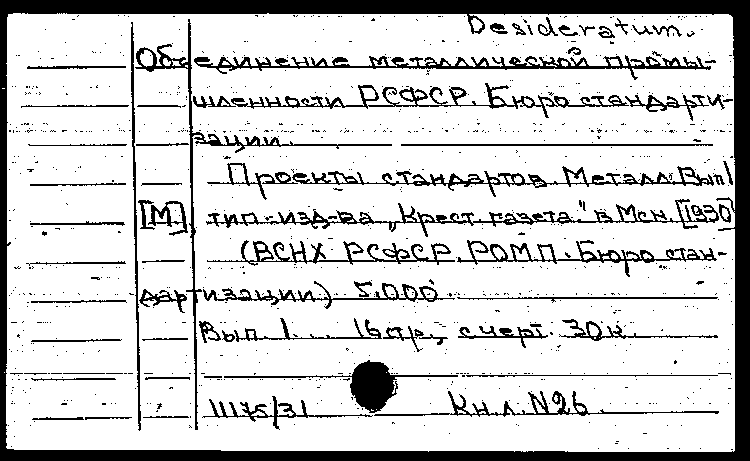 Desideratum.
Объединение металлической промы-
шленности РСФСР. Бюро стандарти-
зации.
Проекты стандартов. Металл. Вып 1
[М], тип. изд-ва „Крест. газета." в Мск. [1930
(ВСНХ РСФСР. РОМП. Бюро стан-
дартизации) 5.000.
Вып. 1... 16 стр., с черт. 30 к.
11175/31 Кн.л. N26.